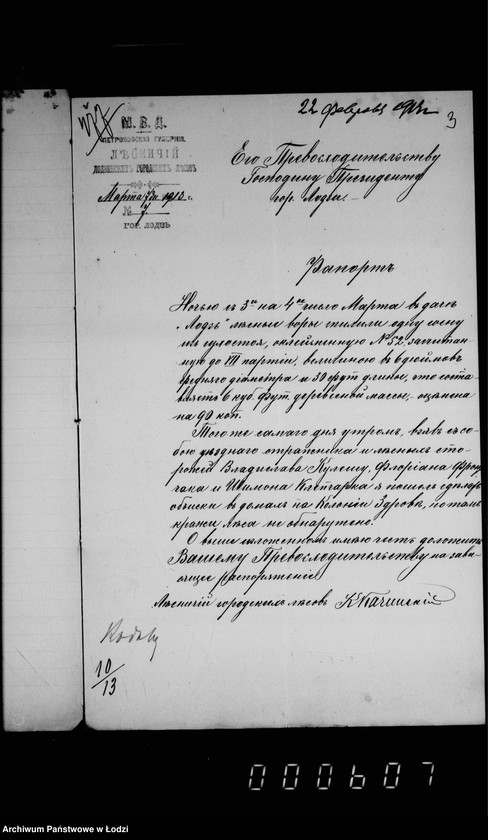 22 Февраля 1913 г.
3
М. В. Д.
ПЕТРОКОВСКАЯ ГУБЕРНІЯ.
ЛѢСНИЧІЙ
ЛОДЗИНСКИХЪ ГОРОДСКИХЪ ЛѢСОВЪ
Марта дня 1913 г.
№ 7
ГОР. ЛОДЗЬ
Его Превосходительству
Господину Президенту
гор. Лодзи.
Рапортъ
Ночью съ 3го на 4ое число Марта въ дачѣ
"Лодзь" лѣсные воры спилили одну сосну
изъ сухостоя, оклейменную № 52, засчитан-
ную до III партіи, величиною въ 6 дюймовъ
средняго діаметра и 30 фут. длины, что соста-
вляетъ 6 куб. фут. деревесной массы, оцѣнена
на 90 коп.
Того же самаго дня утромъ, взявъ съ со-
бою уѣзднаго стражника и лѣсныхъ сто-
рожей Владислава Кулешу, Флоріана
и Шимона я пошелъ сдѣлать
обыски въ домахъ на Колоніи Здровье, но тамъ
кражи лѣса не обнаружено.
О вышеизложенномъ имѣю честь доложить
Вашему Превосходительству на зави-
сящее распоряженіе.
Лѣсничій городскихъ лѣсовъ
10/13
000607
Archiwum Państwowe w Łodzi